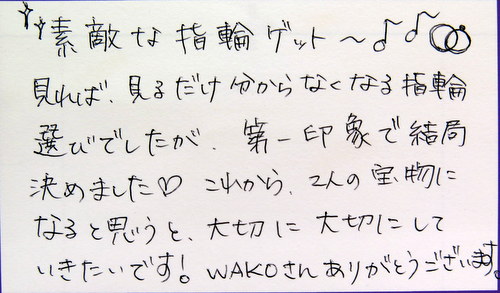 素敵な指輪ゲット～♪♪
見れば、見るだけ分からなくなる指輪
選びでしたが、第一印象で結局
決めました♡ これから、2人の宝物に
なると思うと、大切に大切にして
いきたいです! WAKOさんありがとうございます。